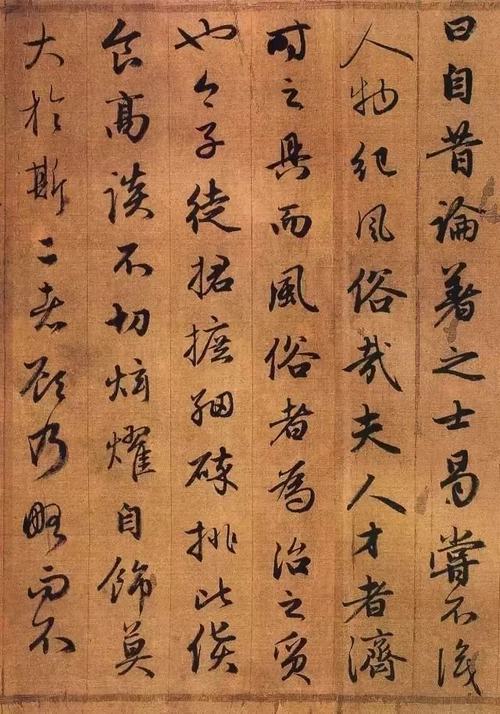 曰自昔論著之士曷嘗不
人物紀風俗哉夫人才者濟
時之具而風俗者為治之質
也今子徒捃摭細碎排比
食高談不切炫耀自飾莫
大於斯二者顧乃略而不